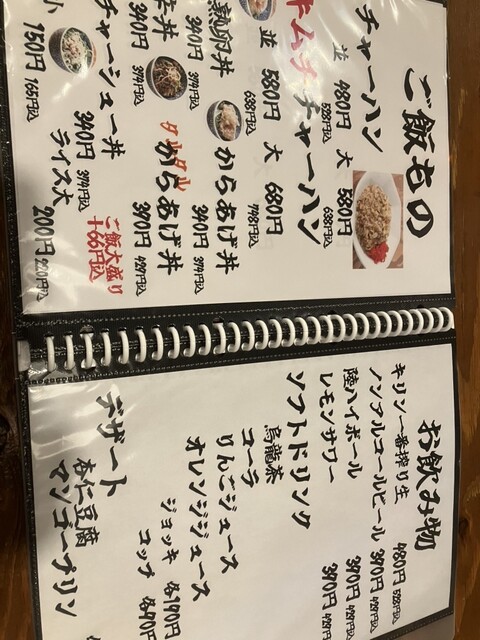 ご飯もの
チャーハン
並 480円 528円込 大 580円 638円込
キムチチャーハン
並 580円 638円込 大 680円 748円込
熟卵丼 340円 374円込
からあげ丼 340円 374円込
丼 340円 374円込
タルタルからあげ丼 390円 429円込
チャーシュー丼 340円 374円込
ご飯大盛り +66円込
小 150円 165円込
ライス大 200円 220円込
お飲み物
キリン一番搾り生 480円 528円込
ノンアルコールビール 390円 429円込
陸ハイボール 390円 429円込
レモンサワー 390円 429円
ソフトドリンク
烏龍茶
コーラ
りんごジュース
オレンジジュース
ジョッキ 各190円
コップ
デザート
杏仁豆腐
マンゴープリン